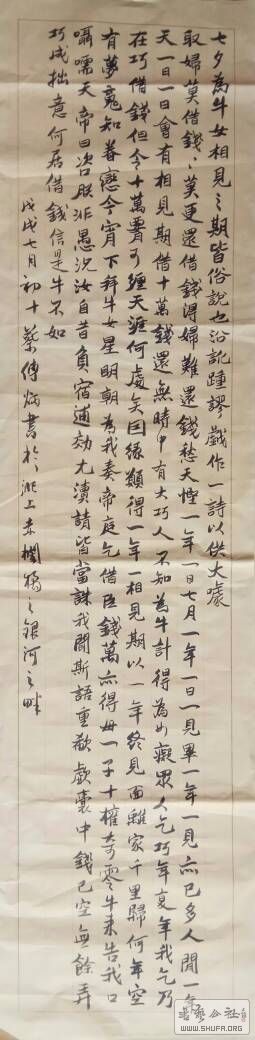 七夕為牛女相見之期皆俗說也沿訛踵謬戲作一詩以供大噱
取婦莫借錢〻莫更還借錢得婦難還錢愁天慳一年一日七月一年一日一見畢一年一見亦已多人間一年
天一日一日會有相見期借十萬錢還無時中有大巧人不知為牛計得為女癡眾人乞巧年復年我乞乃
在巧借錢但令十萬貫可纏天涯何處矣因緣類得一年一相見期以一年終見面離家千里歸何年空
有夢魂知眷戀今宵下拜牛女星明朝為我奏帝庭乞借臣錢萬亦得毋一子十權奇零牛來告我口
囁嚅天帝曰咨朕非愚況汝自昔負宿逋効尤瀆請皆當誅我聞斯語重歔欷囊中錢已空無餘弄
巧成拙意何居借錢信是牛不如
戊戌七月初十蔡傳炳書於湖上赤欄橋之銀河之畔
書藝公社
WWW.SHUFA.ORG